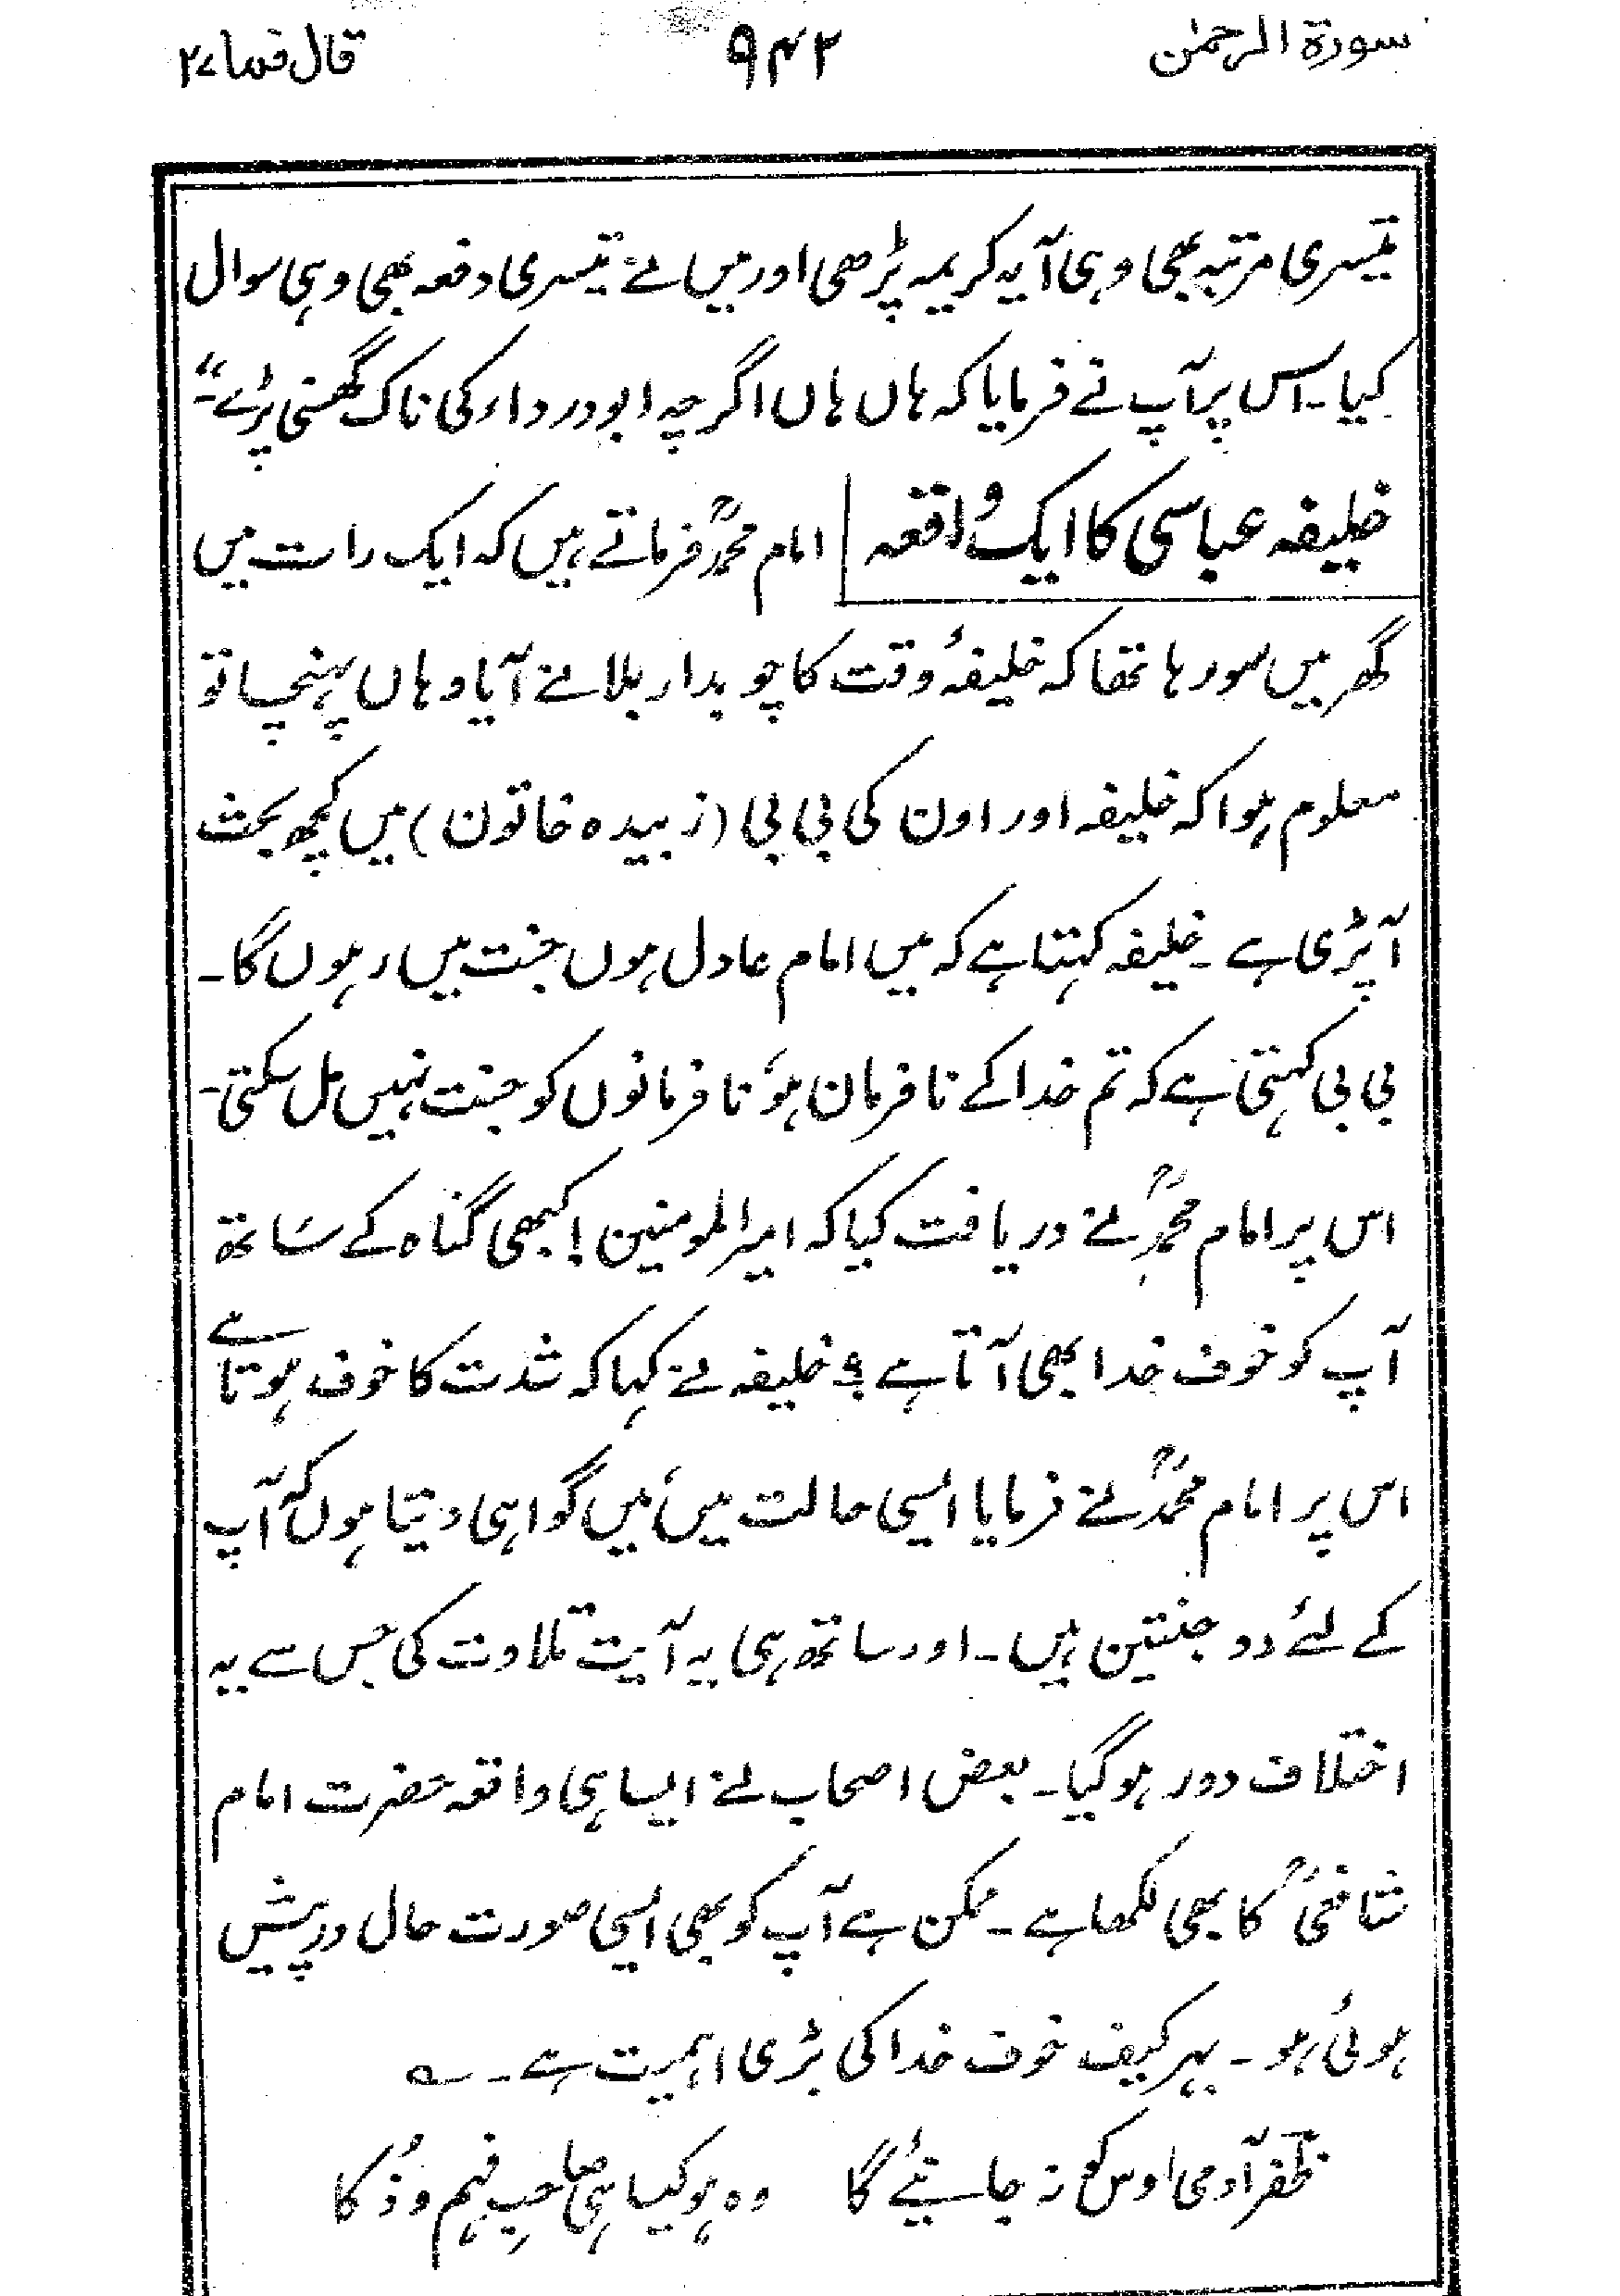 سورة الرحمٰن ۹۴۲ قال فما ۲۷
تیسری مرتبہ بھی وہی آیہ کریمہ پڑھی اور میں نے تیسری دفعہ بھی وہی سوال
کیا۔ اس پر آپ نے فرمایا کہ ہاں ہاں اگرچہ ابودرداء کی ناک گھسنی پڑے"۔
خلیفہ عباسی کا ایک واقعہ امام محمدؒ فرماتے ہیں کہ ایک رات میں
گھر میں سو رہا تھا کہ خلیفۂ وقت کا چوبدار بلانے آیا وہاں پہنچا تو
معلوم ہوا کہ خلیفہ اور اون کی بی بی (زبیدہ خاتون) میں کچھ بحث
آپڑی ہے۔ خلیفہ کہتا ہے کہ میں امام عادل ہوں جنت میں رہوں گا۔
بی بی کہتی ہے کہ تم خدا کے نافرمان ہو، نافرمانوں کو جنت نہیں مل سکتی۔
اس پر امام محمدؒ نے دریافت کیا کہ امیر المومنین! کبھی گناہ کے ساتھ
آپ کو خوف خدا بھی آتا ہے؟ خلیفہ نے کہا کہ شدت کا خوف ہوتا ہے
اس پر امام محمدؒ نے فرمایا ایسی حالت میں، میں گواہی دیتا ہوں کہ آپ
کے لئے دو جنتین ہیں۔ اور ساتھ ہی یہ آیت تلاوت کی جس سے یہ
اختلاف دور ہوگیا۔ بعض اصحاب نے ایسا ہی واقعہ حضرت امام
شافعیؒ کا بھی لکھا ہے۔ ممکن ہے آپ کو بھی ایسی صورت حال درپیش
ہوئی ہو۔ بہرکیف خوف خدا کی بڑی اہمیت ہے۔ ؎
ظفر آدمی اوس کو نہ جانیئے گا وہ ہو کیسا ہی صاحبِ فہم و ذُکا